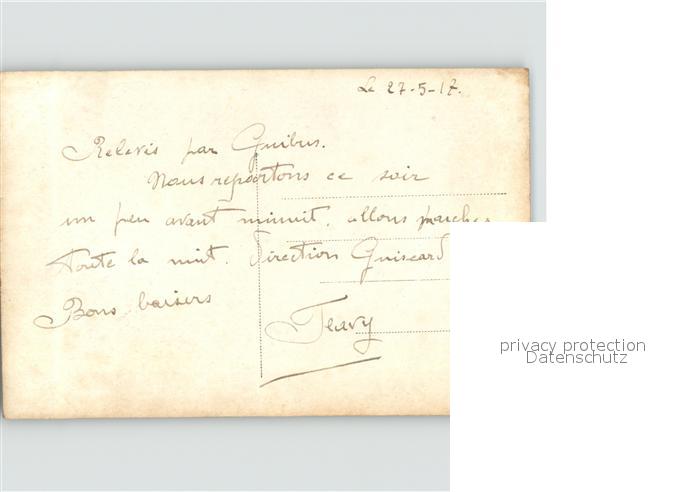 Le 27-5-17.
Relevés par Guibus.
Nous repartons ce soir
un peu avant minuit, allons marcher
toute la nuit. Direction Guiscard
Bons baisers
privacy protection
Datenschutz